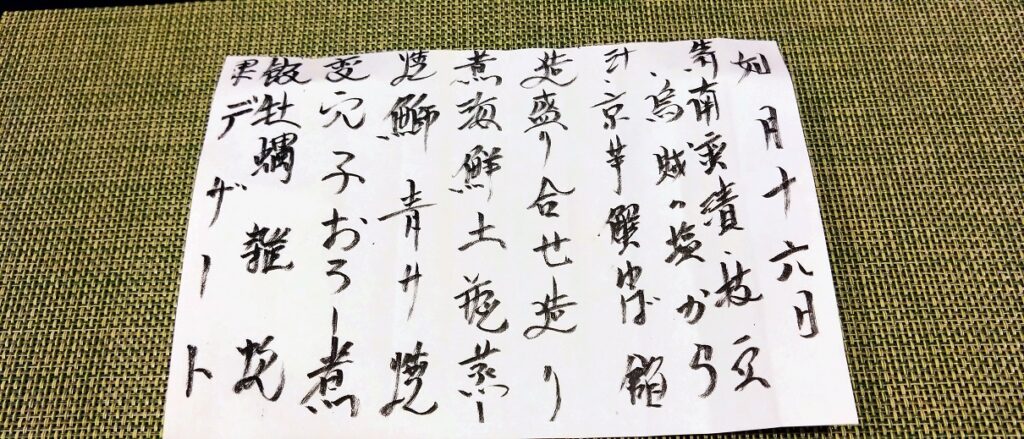 如月十六日
南蛮漬、枝豆
、烏賊の塩から
京芋蟹ゆば餡
造盛り合せ造り
煮海鮮土瓶蒸し
焼鰤青サ焼
変穴子おろし煮
飯牡蠣雑炊
果デザート